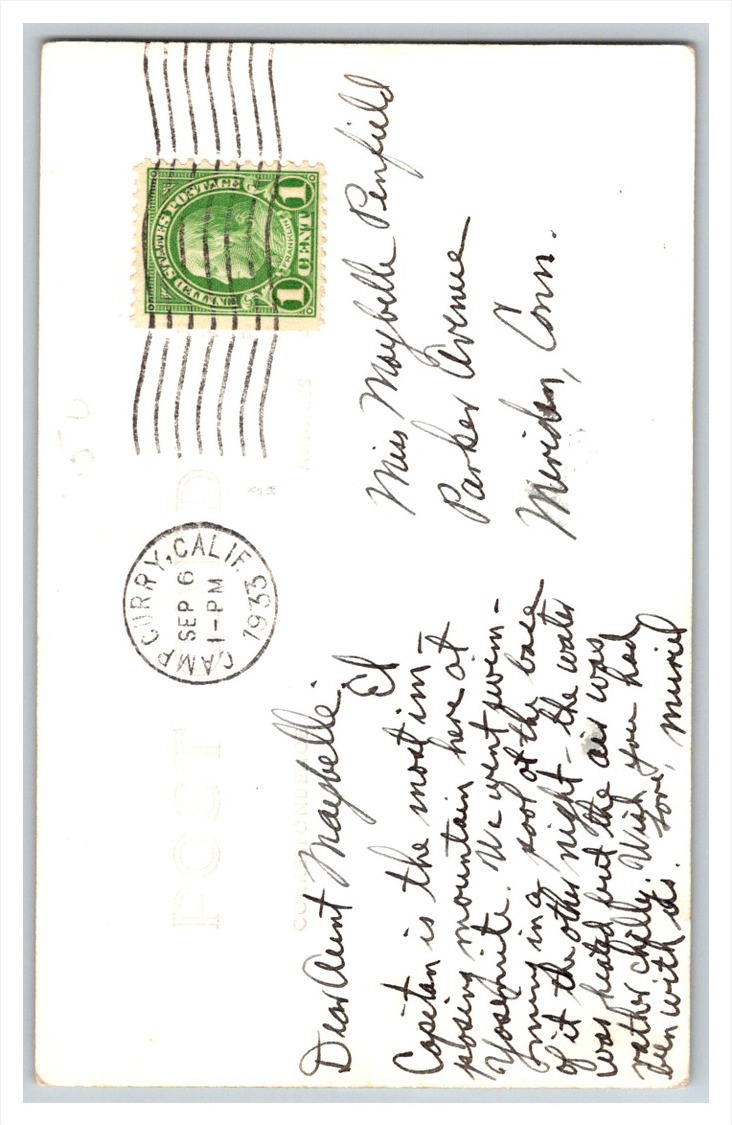 POST CARD
CORRESPONDENCE
ADDRESS
CAMP CURRY, CALIF.
SEP 6
1-PM
1933
UNITED STATES POSTAGE
FRANKLIN
1 CENT 1
Dear Aunt Maybelle:
El
Capitan is the most im-
posing mountain here at
Yosemite. We went swim-
ming in a pool at the base
of it the other night - the water
was heated but the air was
rather chilly. Wish you had
been with us. Love, Muriel
Miss Maybelle Penfield
Parker Avenue
Meriden, Conn.